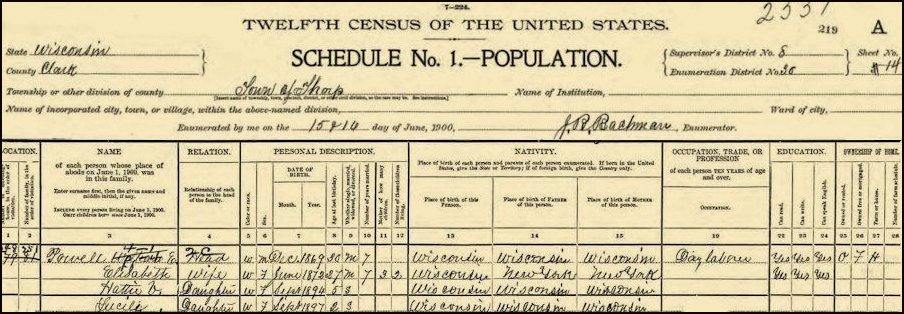 7-224.
2331
TWELFTH CENSUS OF THE UNITED STATES.
219 A
State Wisconsin
County Clark
SCHEDULE No. 1.—POPULATION.
Supervisor's District No. 8 Sheet No.
Enumeration District No. 20 14
Township or other division of county Town of Thorp Name of Institution,
Name of incorporated city, town, or village, within the above-named division, Ward of city,
Enumerated by me on the 15 & 14 day of June, 1900, J. R. Bachman, Enumerator.
LOCATION. NAME RELATION. PERSONAL DESCRIPTION. NATIVITY. OCCUPATION, TRADE, OR PROFESSION EDUCATION. OWNERSHIP OF HOME.
of each person whose place of abode on June 1, 1900, was in this family.
Enter surname first, then the given name and middle initial, if any.
Include every person living on June 1, 1900.
Omit children born since June 1, 1900.
Relationship of each person to the head of the family.
DATE OF BIRTH.
Month. Year.
Place of birth of each person and parents of each person enumerated. If born in the United States, give the State or Territory; if of foreign birth, give the Country only.
Place of birth of this Person. Place of birth of Father of this person. Place of birth of Mother of this person.
of each person TEN YEARS of age and over.
Occupation.
1 2 3 4 5 6 7 8 9 10 11 12 13 14 15 19 22 23 24 25 26 27 28
Powell Head W M Dec 1869 30 M 7 Wisconsin Wisconsin Wisconsin Day laborer Yes Yes Yes O F H
Elisabeth Wife W F June 1872 27 M 7 3 2 Wisconsin New York New York Yes Yes Yes
Hattie V. Daughter W F Sept 1894 5 S Wisconsin Wisconsin Wisconsin
Lucile Daughter W F Sept 1897 2 S Wisconsin Wisconsin Wisconsin